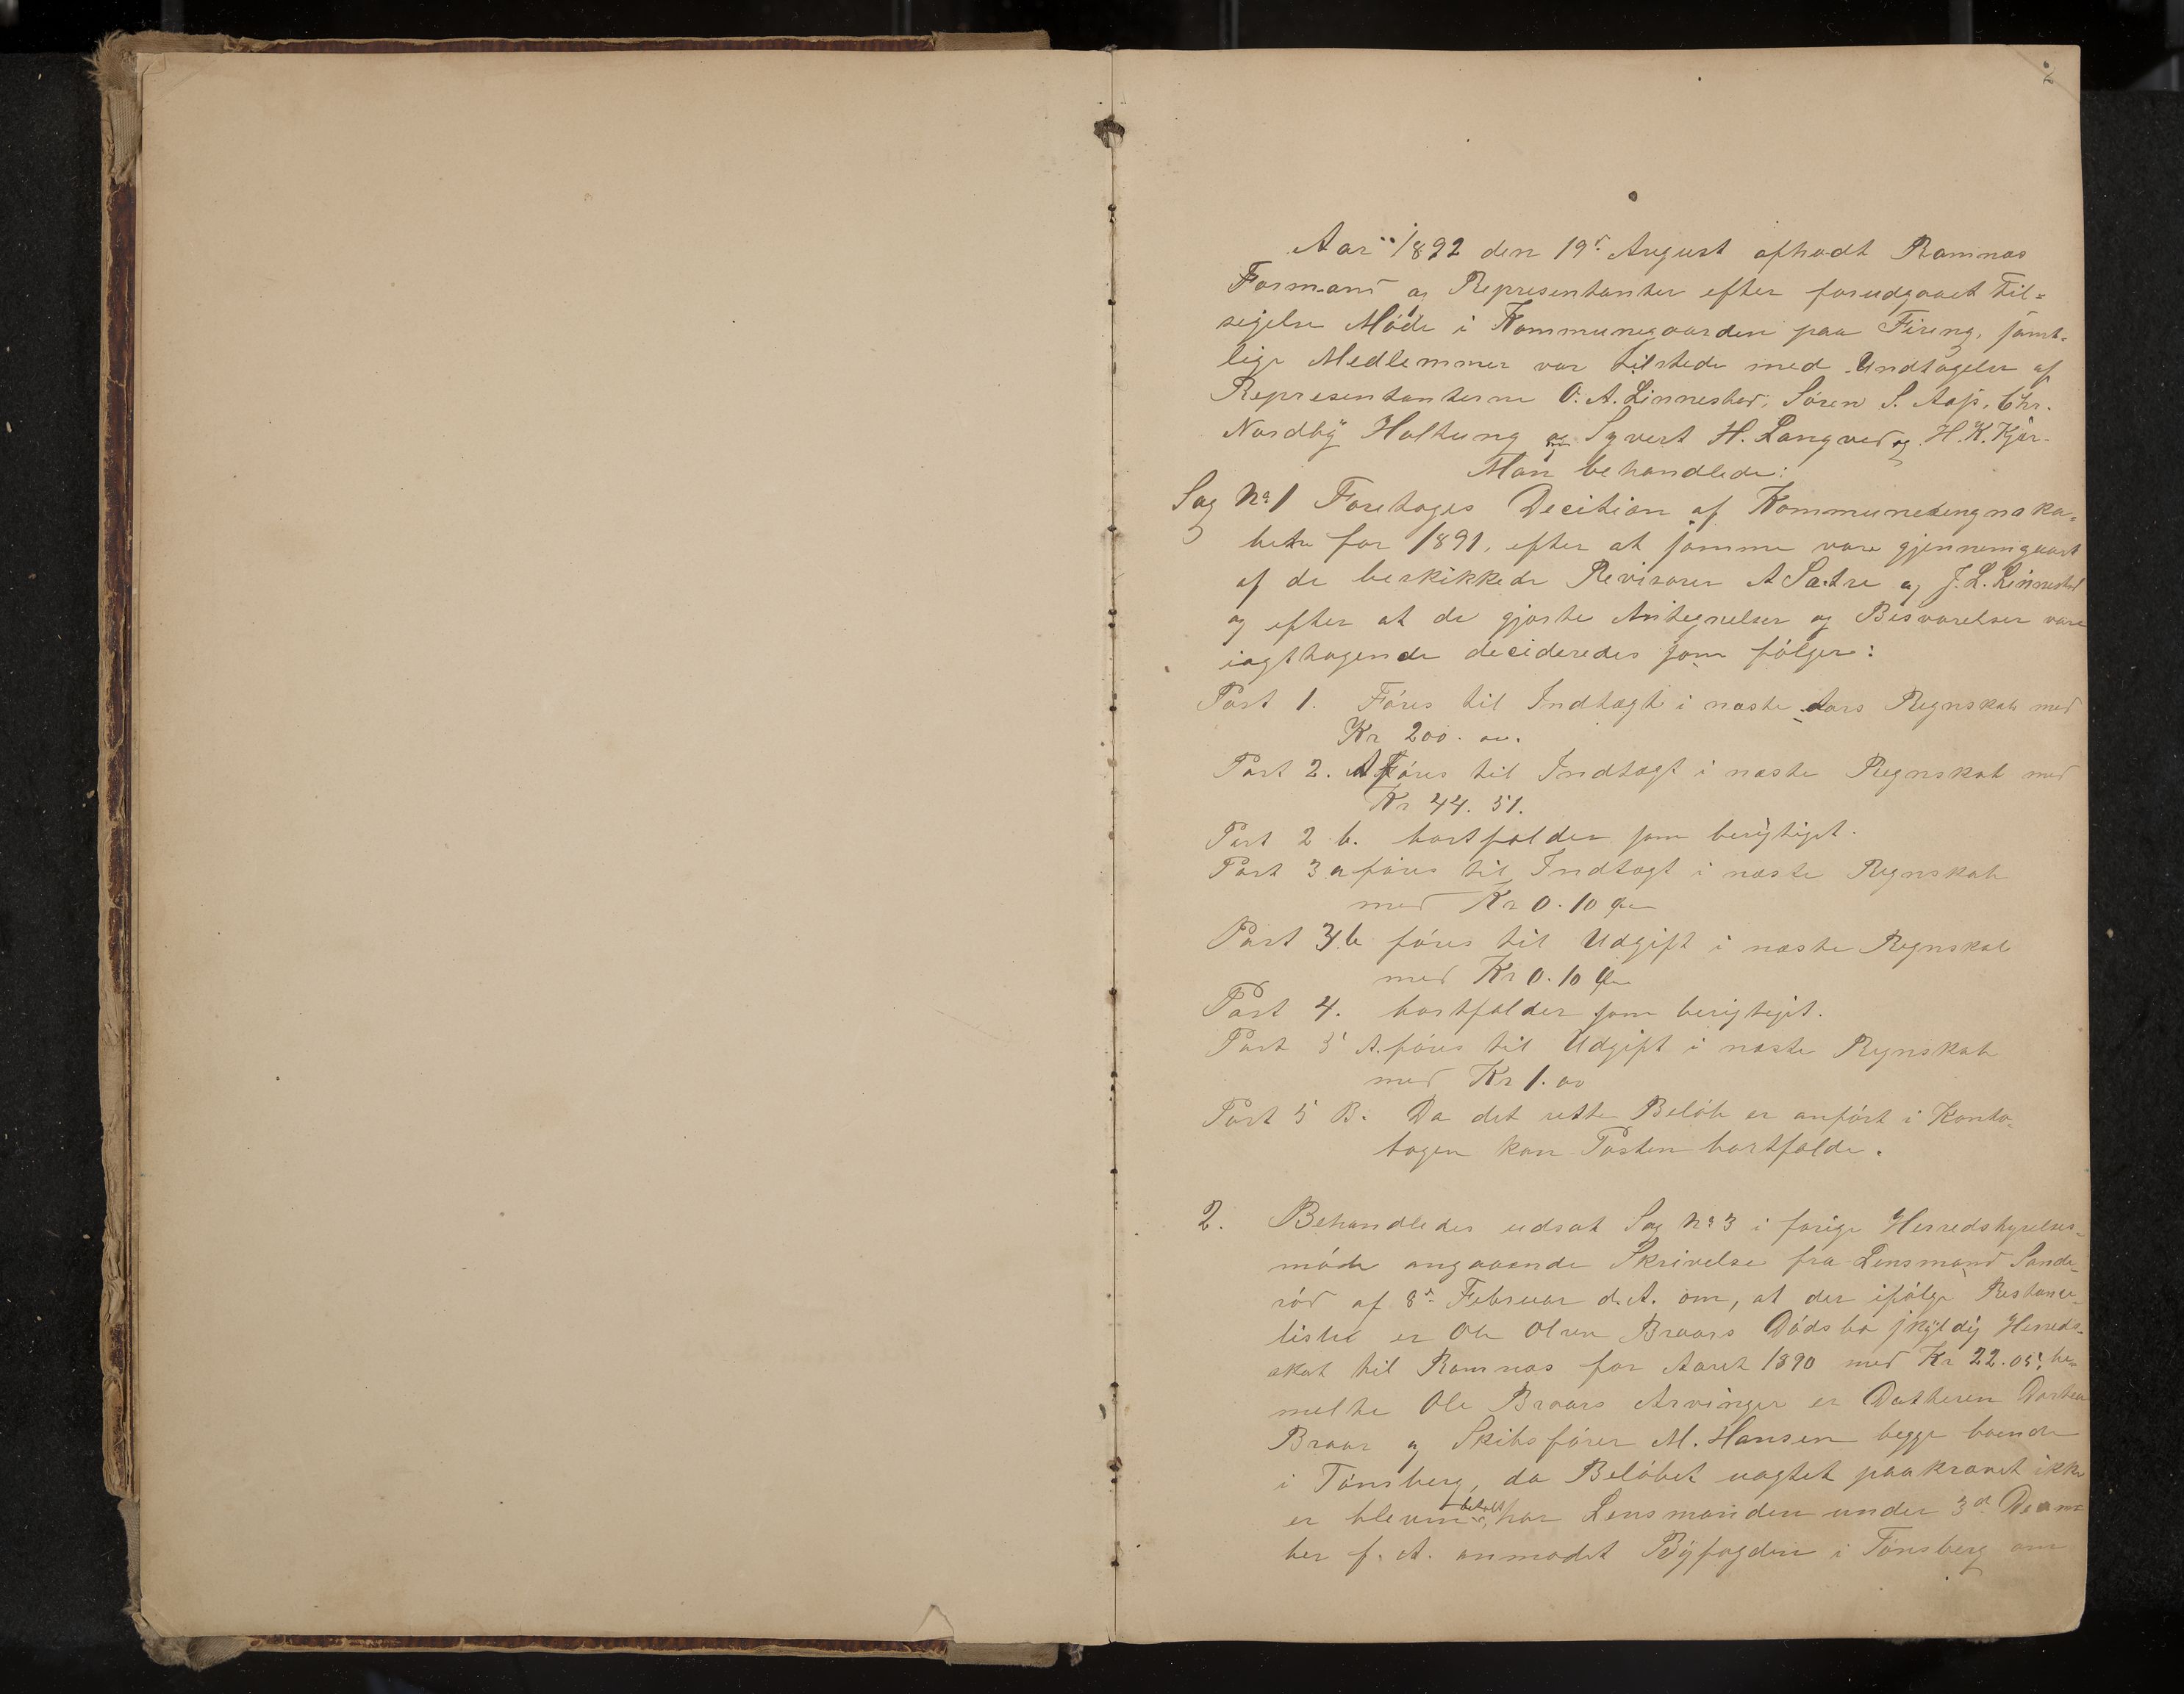 2
Aar 1892 den 19d August afholdt Ramnæs
Formand og Representanter efter forudgaaet Til=
sigelse Møde i Kommunegaarden paa Fireng, samt-
lige Medlemmer var tilstede med Undtagelse af
Representanterne O. A. Linnestad, Søren S. Aass, Chr.
Nordby Holtung Syvert H. Langved og H. K. Kjær.
Man behandlede:
Sag No 1 Foretoges Decition af Kommuneregnska-
bete for 1891, efter at samme vare gjennemgaaet
af de beskikkede Revisorer A Sætre og J. L. Linnestad
og efter at de gjorte Antegnelser og Besvarelser vare
iagttagende decideredes som følger:
Post 1. Føres til Indtægt i næste Aars Regnskab med
Kr 200. oo.
Post 2. A Føres til Indtægt i næste Regnskab med
Kr 44. 51.
Post 2 b. bortfalder som berigtiget.
Post 3 a føres til Indtægt i næste Regnskab
med Kr 0. 10 Øre
Post 3 b føres til Udgift i næste Regnskab
med Kr 0. 10 Øre
Post 4. bortfalder som berigtiget.
Post 5 A. føres til Udgift i næste Regnskab
med Kr 1. oo
Post 5 B. Da det rette Beløb er anført i Konto-
bogen kan Posten bortfalde.
2. Behandledes udsat Sag No 3 i forige Herredstyrelses-
møde angaaende Skrivelse fra Lensmand Sande-
rød af 8d Februar d. A. om, at der ifølge Restance-
liste er Ole Olsen Braars Dødsbo skyldig Herreds-
skat til Ramnæs for Aaret 1890 med Kr 22. 05, be-
meldte Ole Braars Arvinger er Datteren Dorthea
Braar og Skibsfører M. Hansen begge boende
i Tønsberg, da Beløbet uagtet paakrævet ikke
er bleven betalt har Lensmanden under 3d Decem-
ber f. A. anmodet Byfogden i Tønsberg om